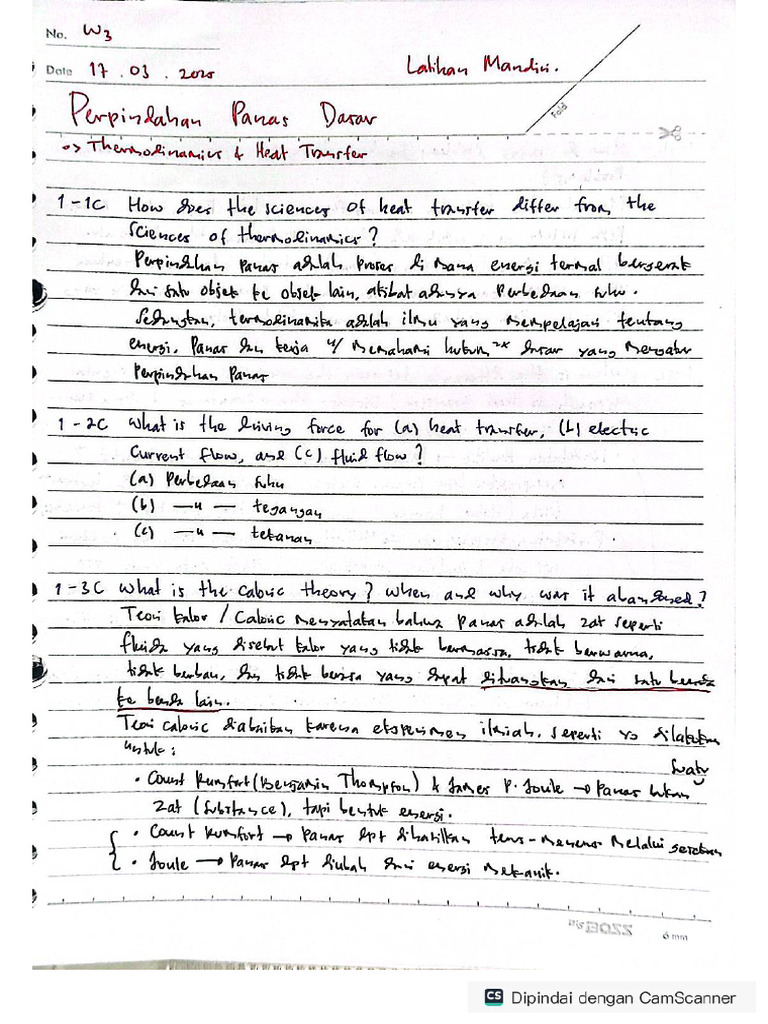 No. W3
Date 17 . 03 . 2025 Latihan Mandiri.
Perpindahan Panas Dasar
Fold
=> Thermodinamics & Heat Transfer
1-1C How does the sciences of heat transfer differ from the
sciences of thermodinamics?
Perpindahan panas adalah proses di mana energi termal bergerak
dari satu objek ke objek lain, akibat adanya perbedaan suhu.
Sedangkan, termodinamika adalah ilmu yang mempelajari tentang
energi, panas dan kerja u/ memahami hukum²× dasar yang mengatur
perpindahan panas
1-2C What is the driving force for (a) heat transfer, (b) electric
current flow, and (c) fluid flow?
(a) Perbedaan suhu
(b) —u— tegangan
(c) —u— tekanan
1-3C What is the caloric theory? When and why was it abandoned?
Teori kalor / Caloric menyatakan bahwa panas adalah zat seperti
fluida yang disebut kalor yang tidak bermassa, tidak berwarna,
tidak berbau, dan tidak berasa yang dapat dituangkan dari satu benda
ke benda lain.
Teori caloric diabaikan karena eksperimen ilmiah, seperti yg dilakukan
untuk:
• Count Rumfort (Benjamin Thompson) & James P. Joule → Panas bukan suatu
zat (substance), tapi bentuk energi.
• Count Rumfort → panas dpt dihasilkan terus-menerus melalui gesekan
• Joule → panas dpt diubah dari energi mekanik.
BOSS
6 mm
CS Dipindai dengan CamScanner